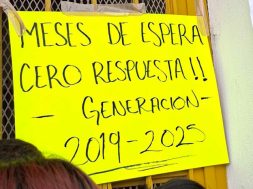 MESES DE ESPERA
CERO RESPUESTA!!
- GENERACION -
- 2019-2025